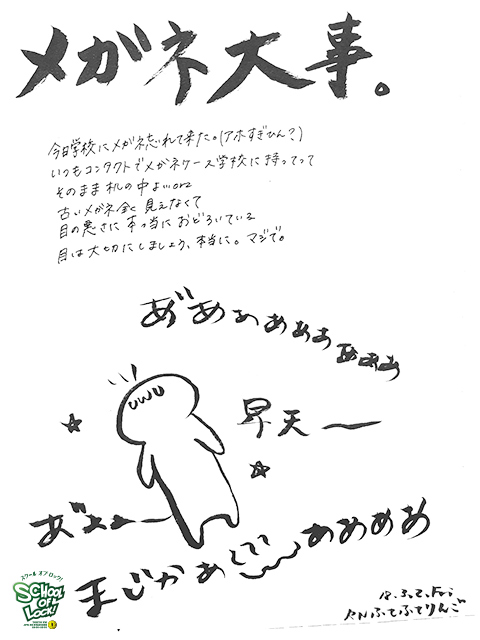 メガネ大事。
今日学校にメガネ忘れて来た。(アホすぎひん?)
いつもコンタクトでメガネケース学校に持ってって
そのまま机の中よ…orz
古いメガネ全く見えなくて
目の悪さに本当におどろいている
目は大切にしましょう、本当に。マジで。
あ゙あぁあぁあぁあぁあ
uwu
早天ー
あ゙ぁぁー
まじかぁ
ああああ
18.3.2.Fri
RNふてふてりんご
スクール オブ ロック!
SCHOOL
OF
LOCK!